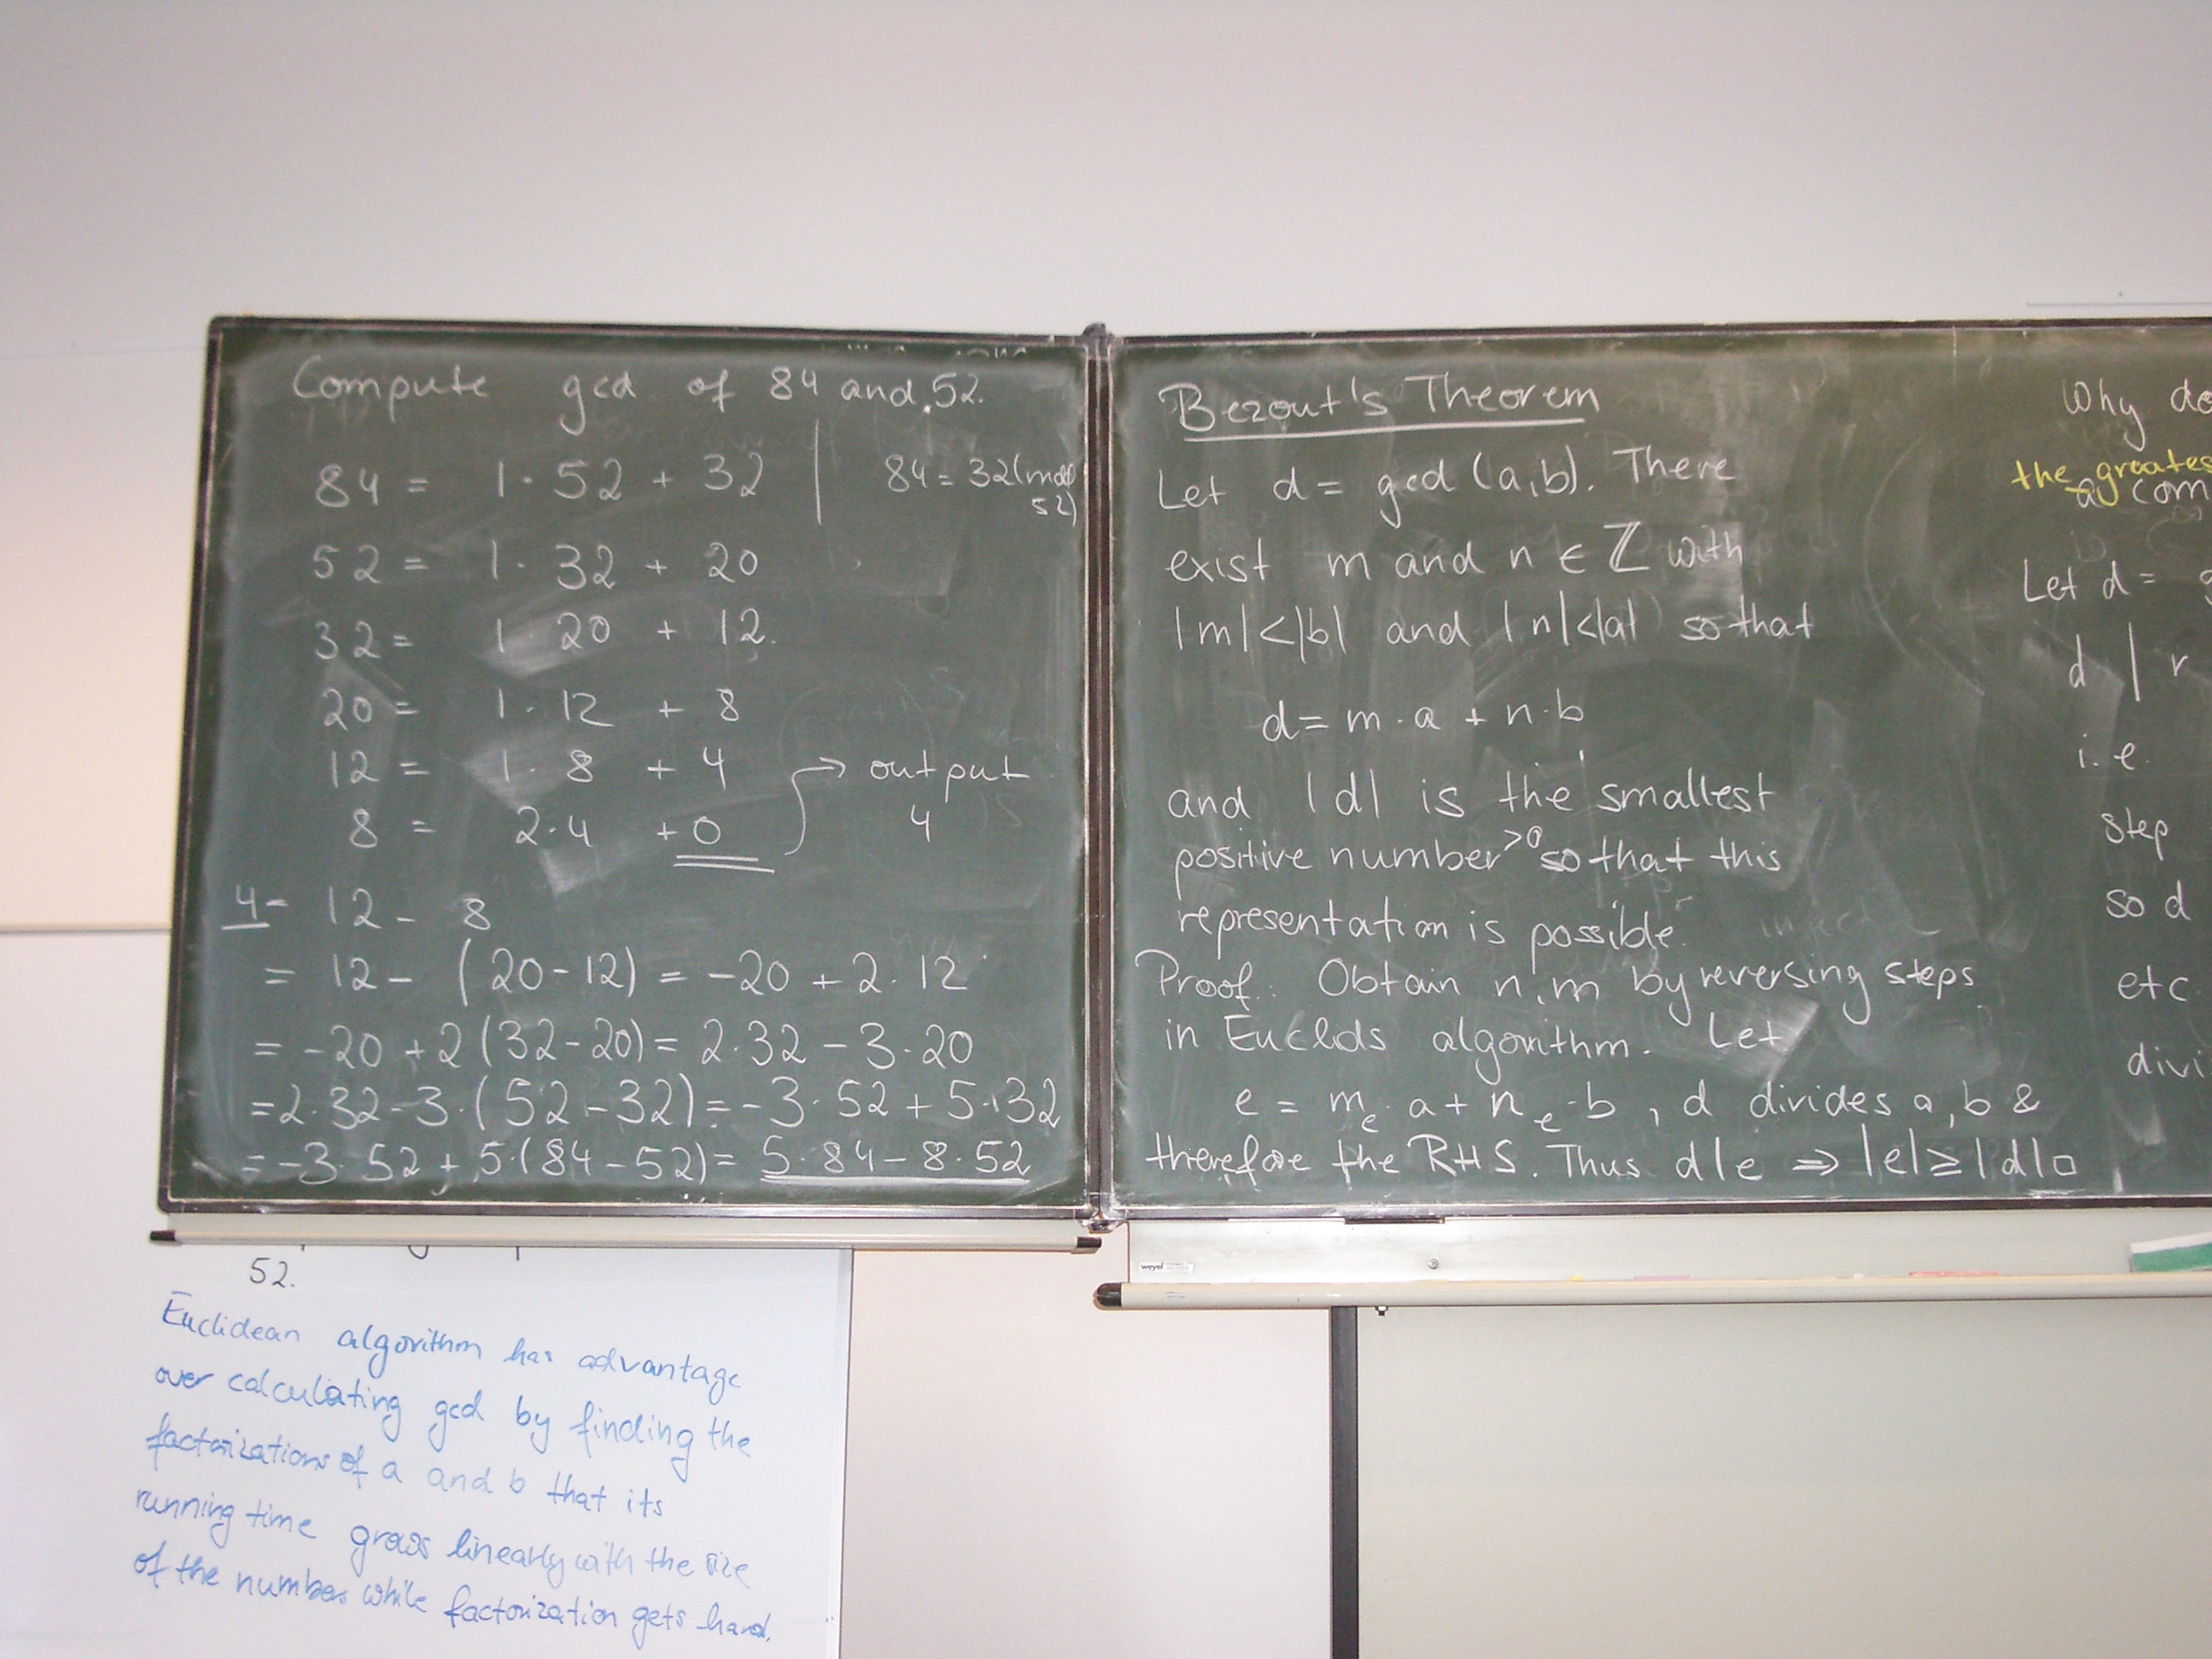 Compute gcd of 84 and 52.
84 = 1·52 + 32 | 84 = 32 (mod
52)
52 = 1· 32 + 20
32 = 1 20 + 12.
20 = 1· 12 + 8
12 = 1· 8 + 4 → output
8 = 2·4 + 0 4
4 = 12 - 8
= 12 - (20-12) = -20 + 2·12
= -20 + 2(32-20) = 2·32 - 3·20
= 2·32 - 3·(52-32) = -3·52 + 5·32
= -3·52 + 5·(84-52) = 5·84 - 8·52
Bezout's Theorem
Let d = gcd (a,b). There
exist m and n ∈ ℤ with
|m|<|b| and |n|<|a| so that
d = m·a + n·b
and |d| is the smallest
positive number >0 so that this
representation is possible.
Proof: Obtain n,m by reversing steps
in Euclids algorithm. Let
e = m_e·a + n_e·b , d divides a, b &
therefore the RHS. Thus d|e ⇒ |e| ≥ |d| □
Why do
the greates
a com
Let d =
d | r
i.e.
step
so d
etc
divi
weyel
52.
Euclidean algorithm has advantage
over calculating gcd by finding the
factorizations of a and b that its
running time grows linearly with the size
of the numbers while factorization gets hard.